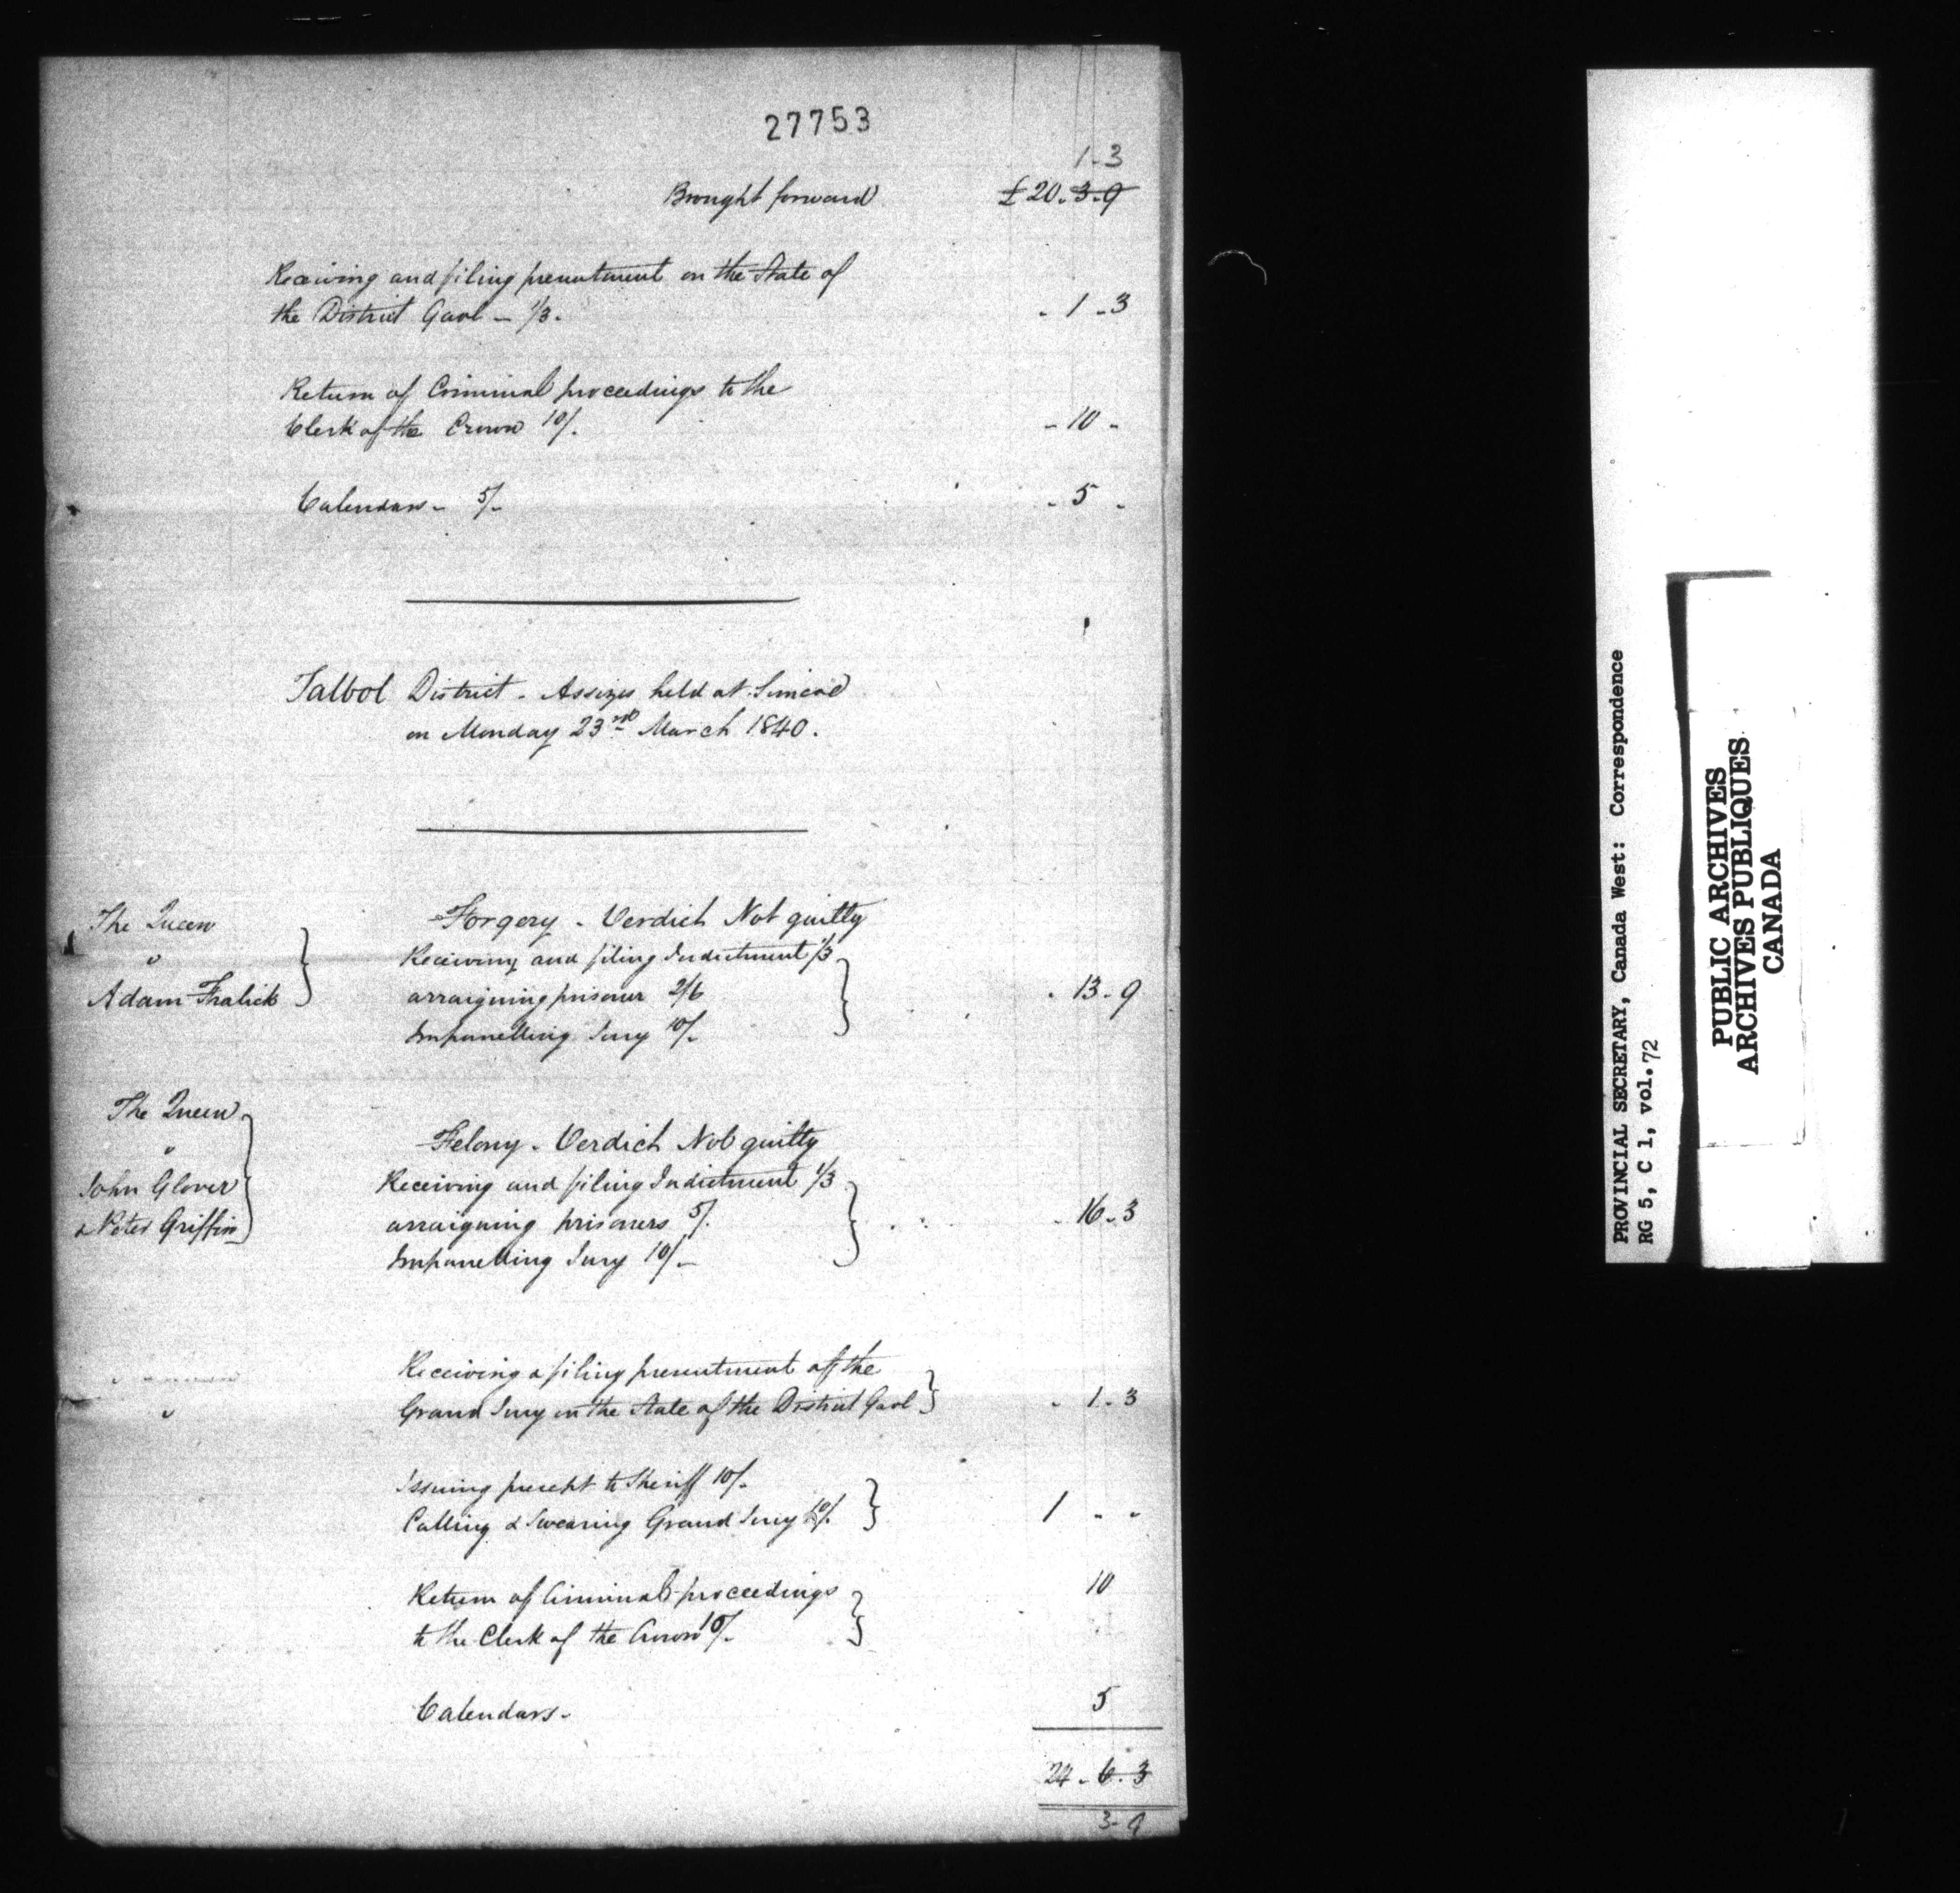 27753
1-3
Brought forward £20.3-9
Receiving and filing presentment on the State of
the District Gaol - 1/3. - 1 - 3
Return of Criminal proceedings to the
Clerk of the Crown 10/. - 10 -
Calendars - 5/- - 5 -
Talbot District - Assizes held at Simcoe
on Monday 23rd March 1840.
The Queen
"
Adam Fralick
Forgery - Verdict Not guilty
Receiving and filing Indictment 1/3
arraigning prisoner 2/6 - 13 - 9
Impanelling Jury 10/-
The Queen
"
John Glover
& Peter Griffin
Felony - Verdict Not guilty
Receiving and filing Indictment 1/3
arraigning prisoners 5/. - 16 - 3
Impanelling Jury 10/-
Receiving & filing presentment of the
Grand Jury on the State of the District Gaol - 1 - 3
Issuing precept to Sheriff 10/-
Calling & Swearing Grand Jury 10/. 1 - -
Return of Criminal proceedings 10
to the Clerk of the Crown 10/-
Calendars - 5
24 - 6 - 3
3 - 9
PROVINCIAL SECRETARY, Canada West: Correspondence
RG 5, C 1, vol. 72
PUBLIC ARCHIVES
ARCHIVES PUBLIQUES
CANADA